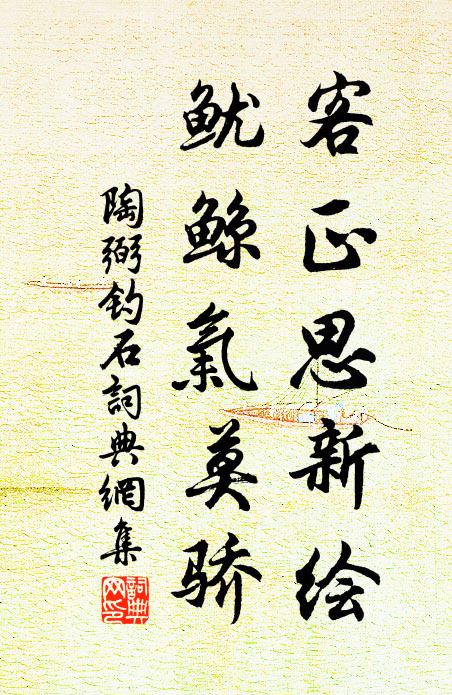 客正思新绘
鱿鲸氣莫骄
陶弼钓石詞典網集
詞典
网印